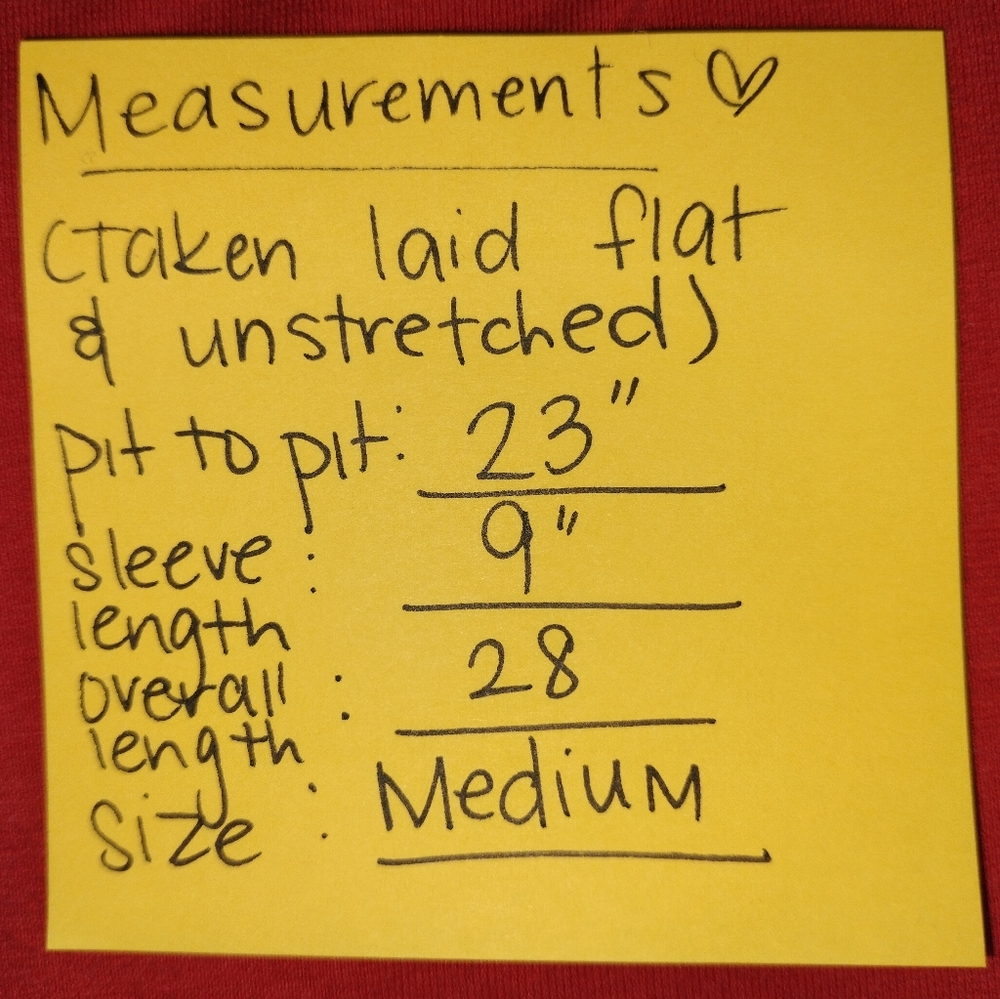 Measurements ♡
(Taken laid flat
& unstretched)
pit to pit: 23"
sleeve length: 9"
overall length: 28
Size: Medium